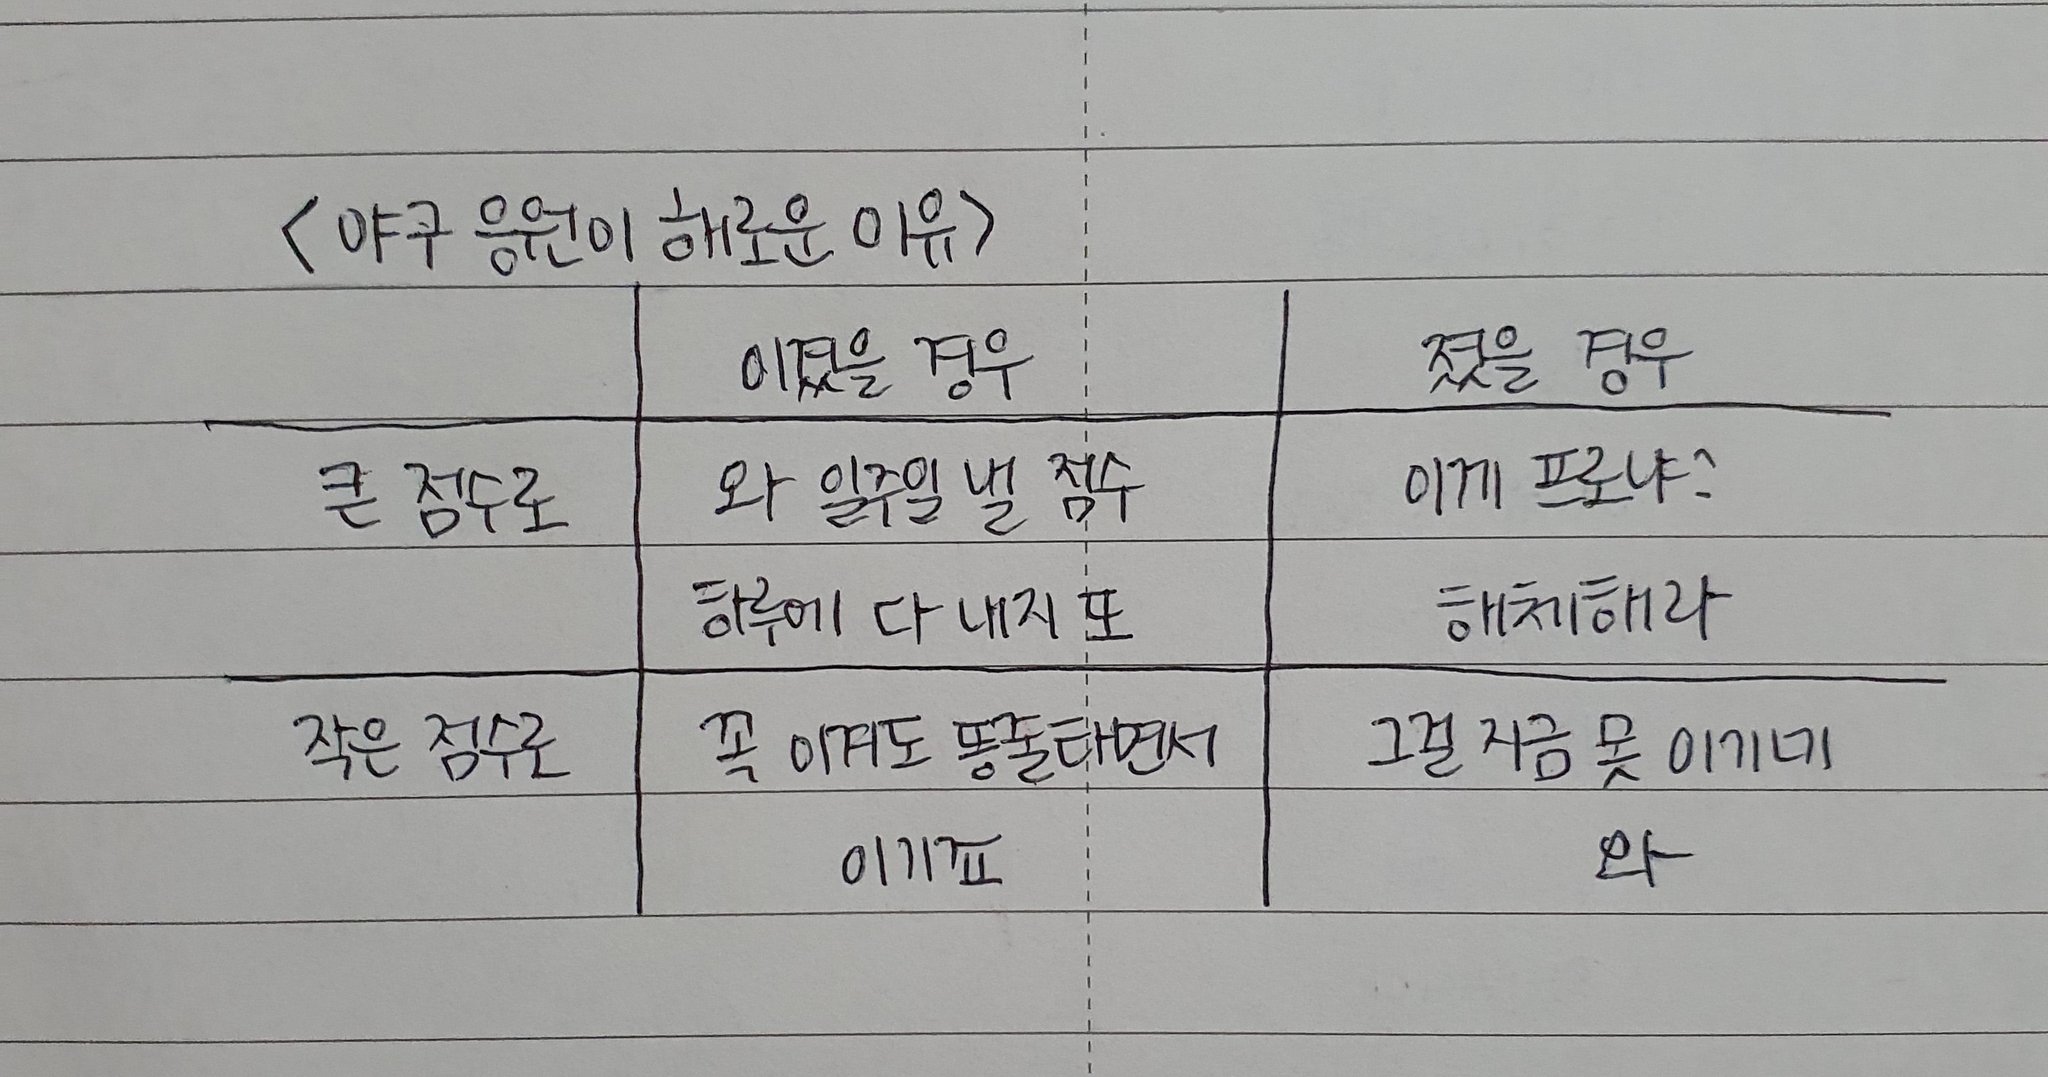 <야구 응원이 해로운 이유>
이겼을 경우 졌을 경우
큰 점수로 와 일주일 낼 점수 이게 프로냐?
하루에 다 내지 또 해체해라
작은 점수로 꼭 이겨도 똥줄타면서 그걸 지금 못 이기네
이기죠 와